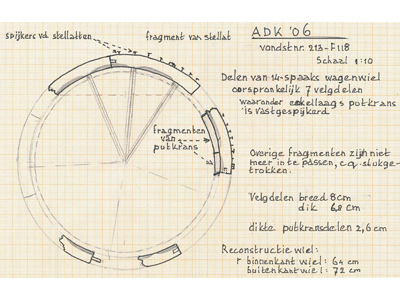 ADK '06
vondstnr. 213-F118
Schaal 1:10
spijkers v.d. stellatten
fragment van stellat
Delen van 14-spaaks wagenwiel
oorspronkelijk 7 velgdelen
waaronder enkellaags putkrans
is vastgespijkerd
fragmenten
van
putkrans
Overige fragmenten zijn niet
meer in te passen, c.q. stukge-
trokken.
Velgdelen breed 8cm
dik 6,8 cm
dikte putkransdelen 2,6 cm
Reconstructie wiel:
r binnenkant wiel: 64 cm
buitenkant wiel: 72 cm